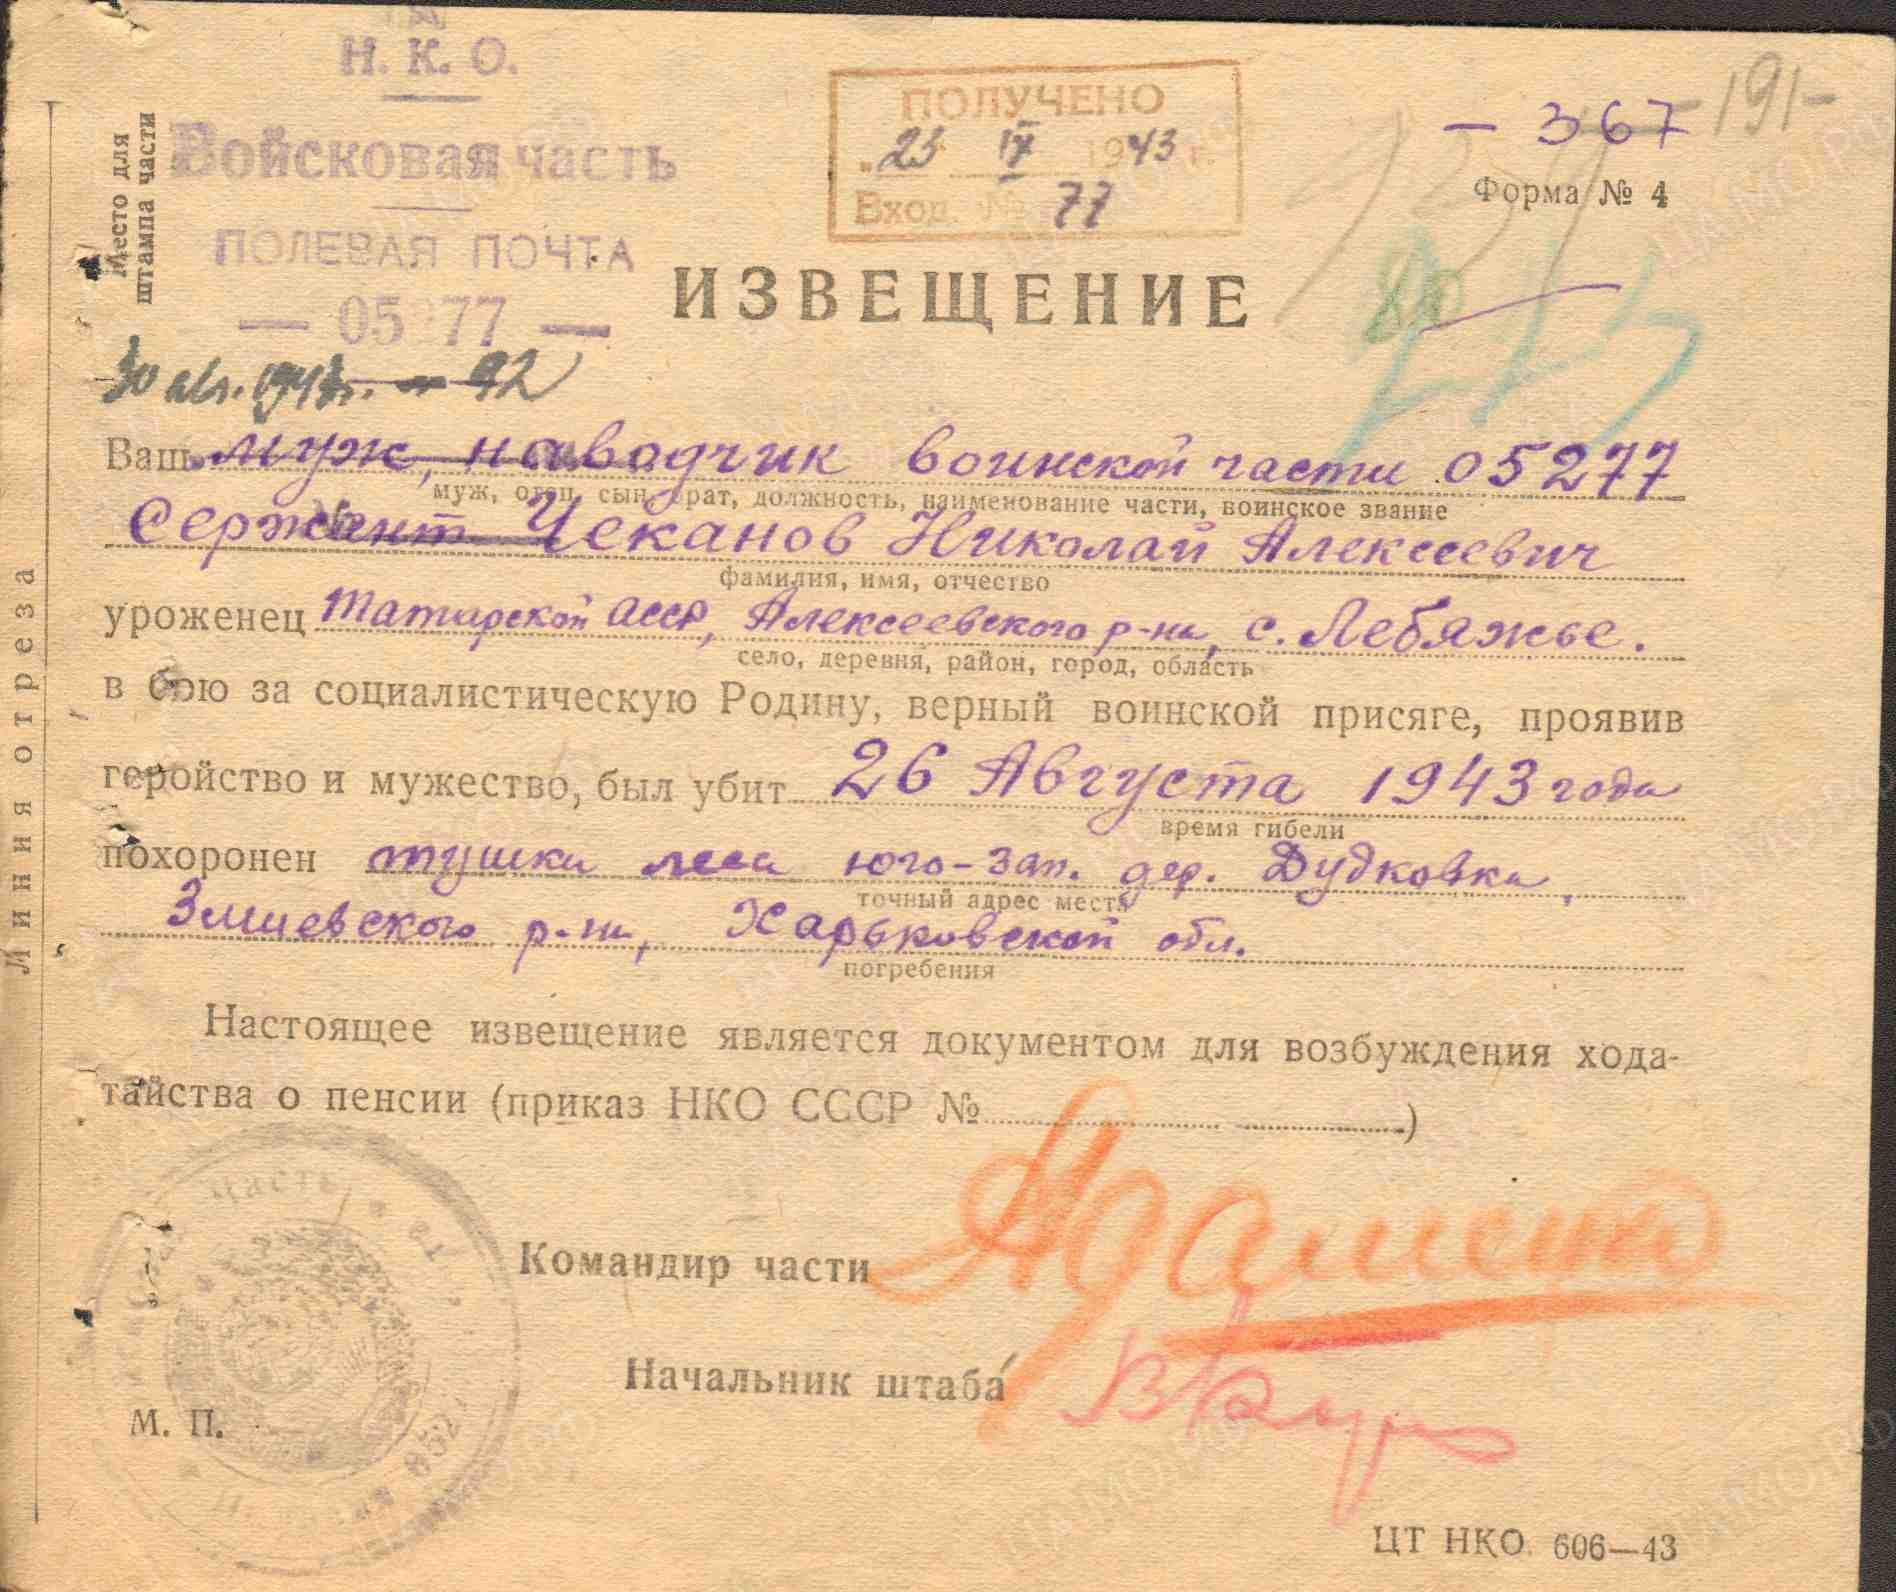 Н. К. О.
Войсковая часть
ПОЛЕВАЯ ПОЧТА
— 05 77 —
30 авг. 1943г. — 92
Место для
штампа части
ПОЛУЧЕНО
„23 IX 1943 г.
Вход. № 77
— 367
— 191 —
Форма № 4
ИЗВЕЩЕНИЕ
Ваш муж, наводчик воинской части 05277
муж, отец, сын, брат, должность, наименование части, воинское звание
Сержант Чеканов Николай Алексеевич
фамилия, имя, отчество
уроженец Татарской АССР, Алексеевского р-на, с. Лебяжье.
село, деревня, район, город, область
в бою за социалистическую Родину, верный воинской присяге, проявив
геройство и мужество, был убит 26 Августа 1943 года
время гибели
похоронен опушка леса юго-зап. дер. Дудковка,
точный адрес места
Змиевского р-на, Харьковской обл.
погребения
Настоящее извещение является документом для возбуждения хода-
тайства о пенсии (приказ НКО СССР № )
Командир части
Начальник штаба
М. П.
ЦТ НКО 606—43
Линия отреза